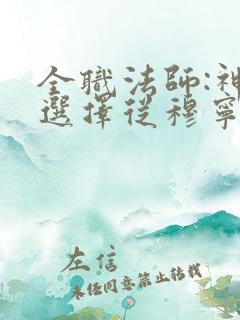 全職法師:神
選擇從穆寧
左信
未经同意禁止转载